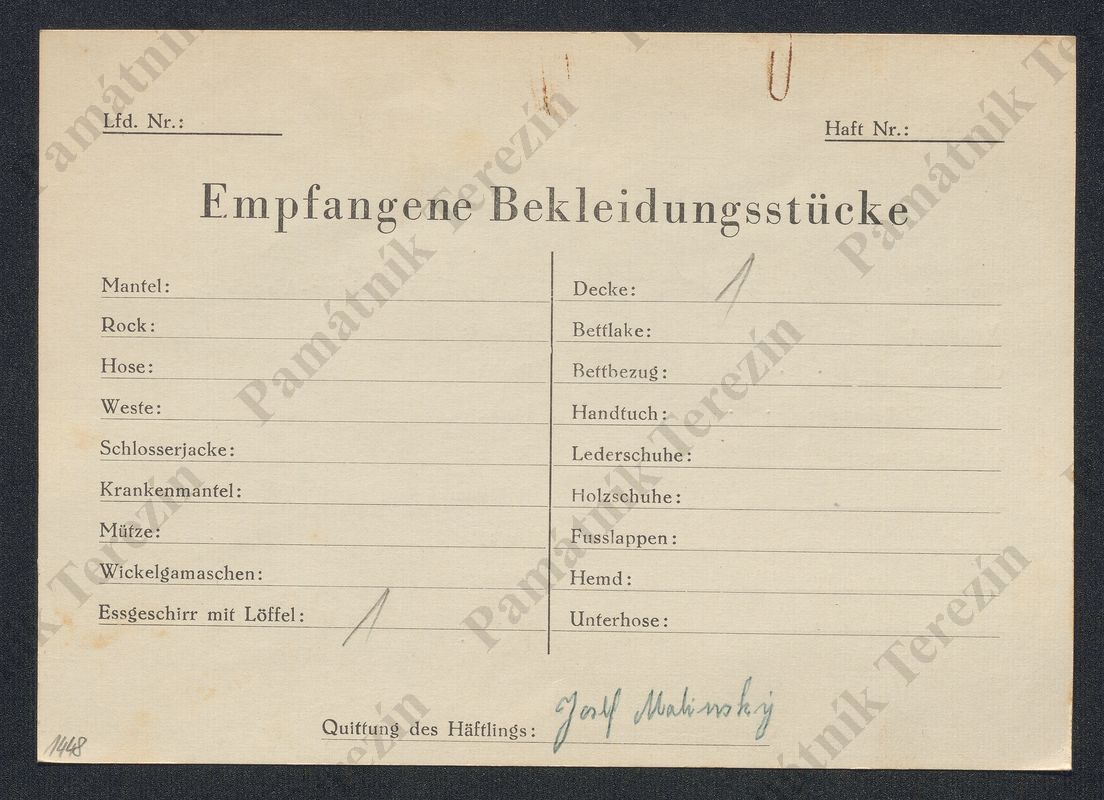 Lfd. Nr.:
Haft Nr.:
Empfangene Bekleidungsstücke
Mantel:
Rock:
Hose:
Weste:
Schlosserjacke:
Krankenmantel:
Mütze:
Wickelgamaschen:
Essgeschirr mit Löffel: 1
Decke: 1
Bettlake:
Bettbezug:
Handtuch:
Lederschuhe:
Holzschuhe:
Fusslappen:
Hemd:
Unterhose:
Quittung des Häftlings: Josef Malinský
1448
Památník Terezín